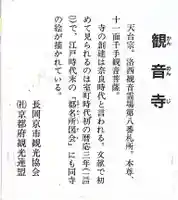 観音寺
かんのんじ
天台宗。洛西観音霊場第八番札所。本尊、
十一面千手観音菩薩。
寺の創建は奈良時代と言われる。文献で初
めて見られるのは室町時代初の暦応三年(一三四
〇)で、江戸時代末の「都名所図会」にも同寺
の絵が描かれている。
長岡京市観光協会
㈳京都府観光連盟